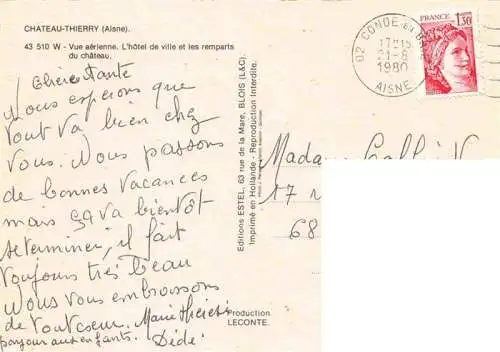 CHATEAU-THIERRY (Aisne).
43 510 W - Vue aérienne. L'hôtel de ville et les remparts
du château.
Chère tante
Nous esperons que
tout va bien chez
vous. Nous passons
de bonnes vacances
mais ça va bientôt
se terminer, il fait
toujours très beau
Nous vous embrassons
de tout coeur. Marie Thérèse
bonjour aux enfants. Dédé
Production
LECONTE.
Editions ESTEL, 63 rue de la Mare, BLOIS (L&C).
Imprimé en Hollande - Reproduction Interdite.
02 CONDE EN B
17H15
21-8
1980
AISNE
FRANCE
1,30
Madame
17 r
68